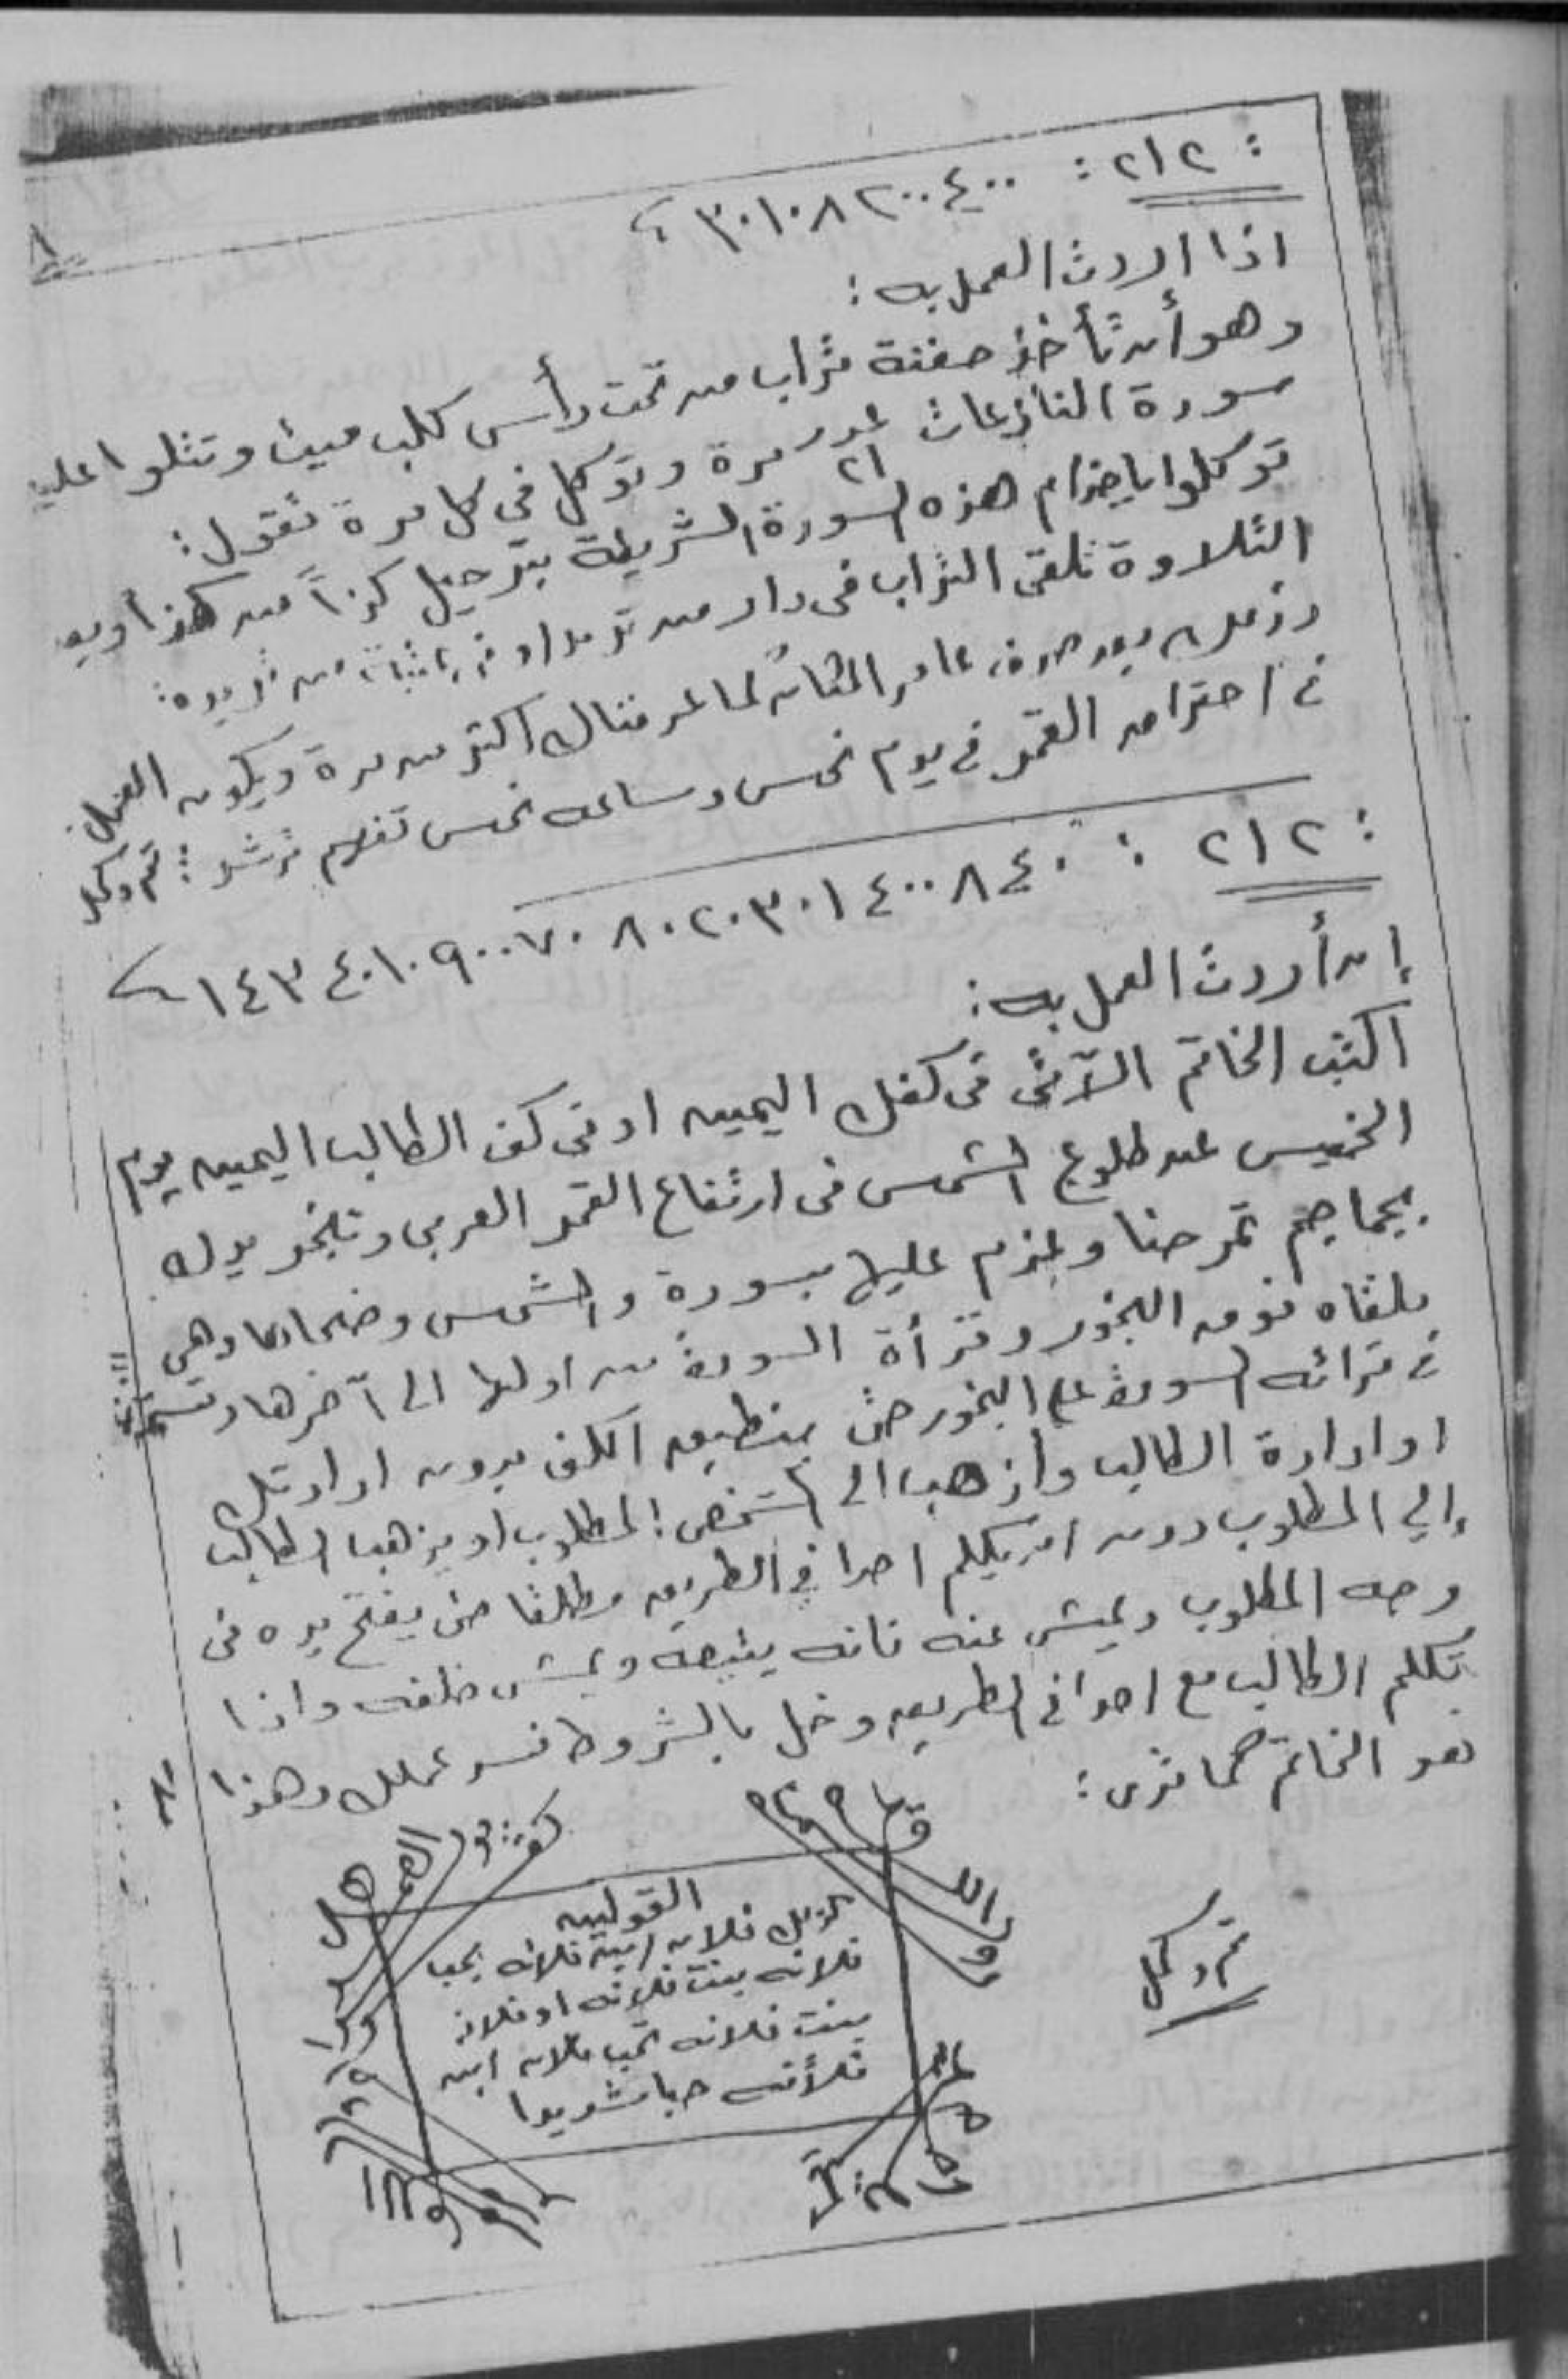 ٨
: ٢١٢ : ٤٠٠ ٢٠٠ ٨ ١٠ ٣٠
اذا اردت العمل به :
وهو أن تأخذ حفنة تراب من تحت رأس كلب ميت وتتلوا عليه
سورة النازعات عدد ٢١ مرة وتوكل في كل مرة تقول :
توكلوا ياخدام هذه السورة الشريفة بترحيل كذا من كذا وبعد
التلاوة تلقى التراب فى دار من تريد او في
بعد صرف عامر المكان كما عرفناك اكثر من مرة ويكون العمل
في احتراق القمر في يوم نحس وساعه نحس تفلح ترشد : تم وكمل
: ٢١٢ : ٤٠ ٨ ٤٠٠ ١ ٣٠ ٢٠ ٨٠ ٧٠ ٩٠٠ ١٠ ٤٠ ١٤٣
إن أردت العمل به :
اكتب الخاتم الآتى فى كفك اليمين او فى كف الطالب اليمين يوم
الخميس عند طلوع الشمس فى ارتفاع القمر العربى وتبخر يدك
بجماجم تمر حنا وعزم عليها بسورة والشمس وضحاها وهى
ملقاه فوق البخور وقرأة السورة من اولها الى آخرها وتستمر
في قرائه السورة على البخور حتى ينطبق الكف بدون ارادتك
او ارادة الطالب واذهب الى الشخص المطلوب او يذهب الطالب
إلي المطلوب دون ان يكلم احدا في الطريق مطلقا حتى يفتح يده فى
وجه المطلوب ويمشى عنه فانه يتبعه ويمشى خلفه واذا
تكلم الطالب مع احدا في الطريق وخل بالشروط فسد عملك وهذا
هو الخاتم كما ترى :
القولين
كذلك فلان ابن فلانه يحب
فلانه بنت فلانه او فلانه
بنت فلانه تحب فلان ابن
فلانه حبا شديدا
تم وكمل